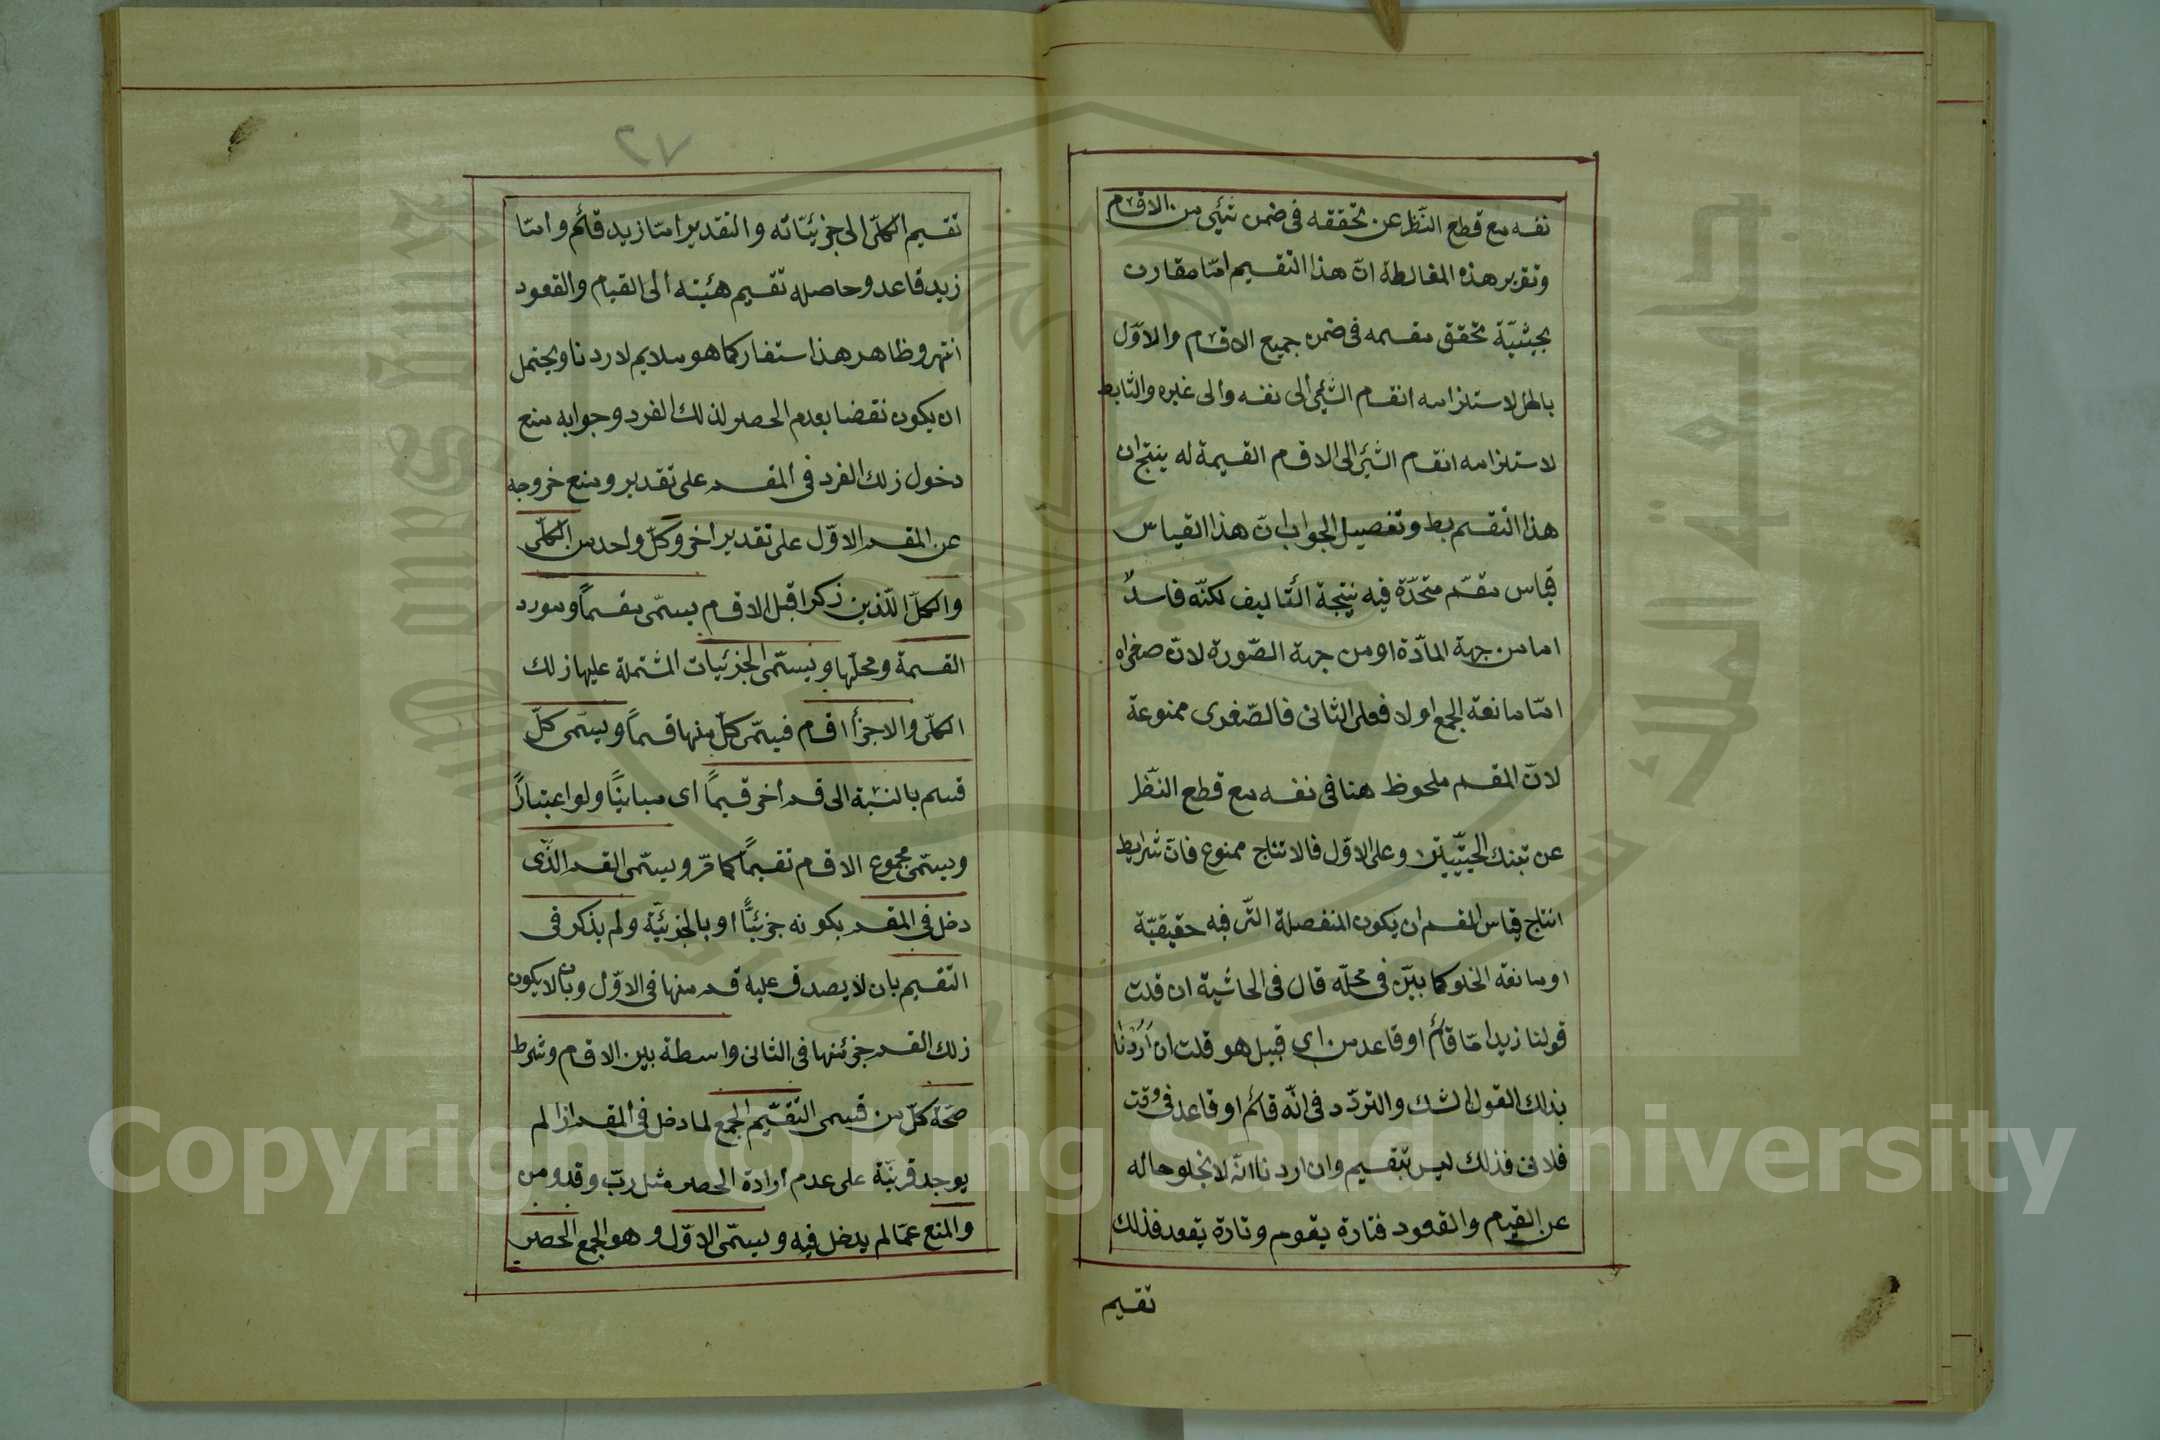 نفسه مع قطع النّظر عن تحققه فى ضمن شئ من الاقسام
وتقرير هذه المغالطة انّ هذا التقسيم امّا مقارن
بحيثيّة تحقق مقسمه فى ضمن جميع الاقسام والاوّل
باطل لاستلزامه انقسام الشئ الى نفسه والى غيره والثا بط
لاستلزامه انقسام الشئ الى الاقسام القسيمة له ينتج ان
هذا التقسيم بط وتفصيل الجواب ان هذا القياس
قياس مقسّم متحدّة فيه نتيجة التّاليف لكنّه فاسدٌ
اما من جهة المادّة او من جهة الصّورة لانّ صغراه
امّا مانعة الجمع او لا فعلى الثانى فالصّغرى ممنوعة
لانّ المقسم ملحوظ هنا فى نفسه مع قطع النّظر
عن تينك الحيثيّتين وعلى الاوّل فالانتاج ممنوع فانّ شرايط
انتاج قياس المقسم ان يكون المنفصلة الّتى فيه حقيقيّة
او مانعة الخلو كما بيّن فى محلّه قال فى الحاشية ان قلت
قولنا زيد امّا قائم او قاعد من اى قبيل هو قلت ان اَرَدْنا
بذلك القول الشك والتردّد فى انّه قائم او قاعد فى وقت
فلانى فذلك ليس بتقسيم وان اردنا انّه لا يخلو حاله
عن القيام والقعود فتارة يقوم وتارة يقعد فذلك
تقسيم
٢٧
تقسيم الكلّى الى جزئيّاته والتقدير امّا زيد قائم وامّا
زيد قاعد وحاصله تقسيم هيئته الى القيام والقعود
انتهى وظاهر هذا استفسار كما هو ملايم لاردنا ويحتمل
ان يكون نقضا بعدم الحصر لذلك الفرد وجوابه منع
دخول ذلك الفرد فى المقسم على تقدير ومنع خروجه
عن المقسم الاوّل على تقدير اخر وكلّ واحد من الكلّى
والكلّ اللّذين ذكرا قبل الاقسام يسمّى مقسماً ومورد
القسمة ومحلّها ويسمّى الجزئيات المشتملة عليها ذلك
الكلّى والاجزأ اقسام فيسمّى كلّ منها قسماً ويسمّى كلّ
قسم بالنسبة الى قسم أخر قسيماً اى مباينًا ولو اعتبارًا
ويسمّى مجموع الاقسام تقسيماً كما مرّ ويسمّى القسم الّذى
دخل فى المقسم بكونه جزئيًّا او بالجزئيّة ولم يذكر فى
التّقسيم بان لا يصدق عليه قسم منها فى الاوّل وبان لا يكون
ذلك القسم جزء منها فى الثانى واسطة بين الاقسام وشرط
صحّة كلّ من قسمى التّقسيم الجمع لما دخل فى المقسم اذا لم
يوجد قرينة على عدم أرادة الحصر مثل ربّ وقد ومن
والمنع عمّا لم يدخل فيه ويسمّى الاوّل وهو الجمع الحصر
Copyright © King Saud University